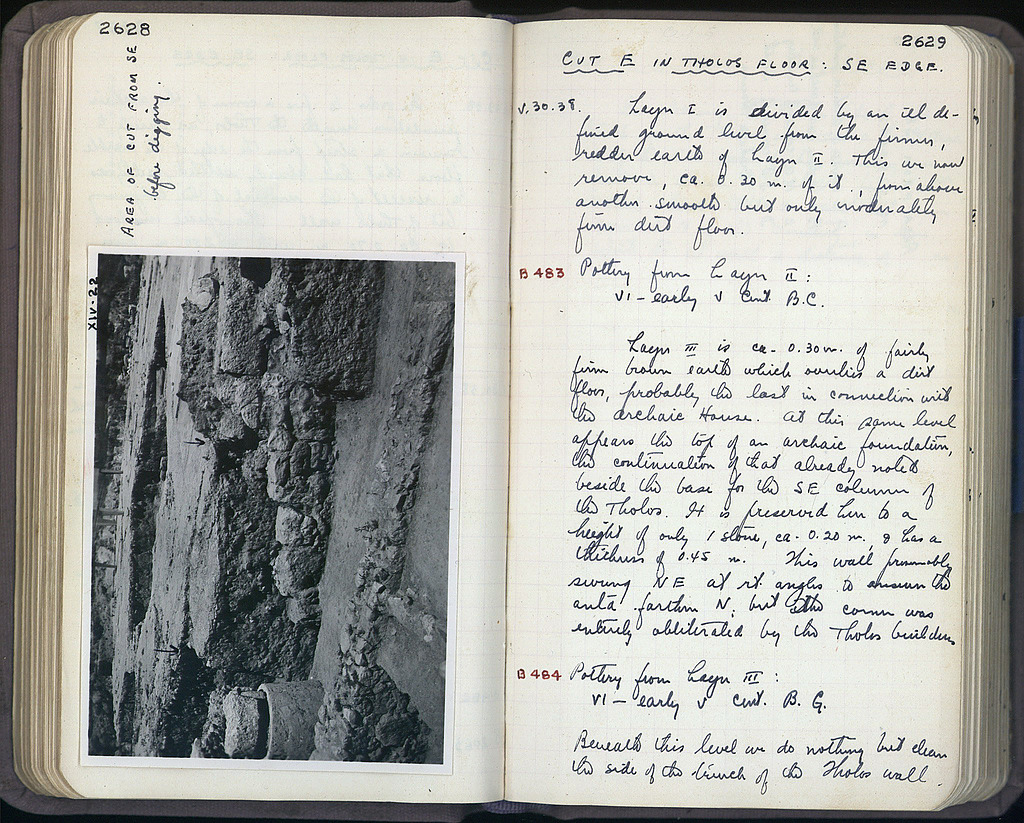 2628
AREA OF CUT FROM SE
before digging.
XIV-22
2629
CUT E IN THOLOS FLOOR: SE EDGE.
V.30.38. Layer I is divided by an ill de-
fined ground level from the firmer,
redder earth of Layer II. This we now
remove, ca. 0.30 m. of it, from above
another smooth but only moderately
firm dirt floor.
B 483 Pottery from Layer II:
VI - early V Cent. B.C.
Layer III is ca. 0.30 m. of fairly
firm brown earth which overlies a dirt
floor, probably the last in connection with
the archaic House. At this same level
appears the top of an archaic foundation,
the continuation of that already noted
beside the base for the SE column of
the Tholos. It is preserved here to a
height of only 1 stone, ca. 0.20 m., & has a
thickness of 0.45 m. This wall presumably
swung NE at rt. angles to the
anta farther N; but the corner was
entirely obliterated by the Tholos builders
B 484 Pottery from Layer III:
VI - early V Cent. B.C.
Beneath this level we do nothing but clean
the side of the trench of the Tholos wall.